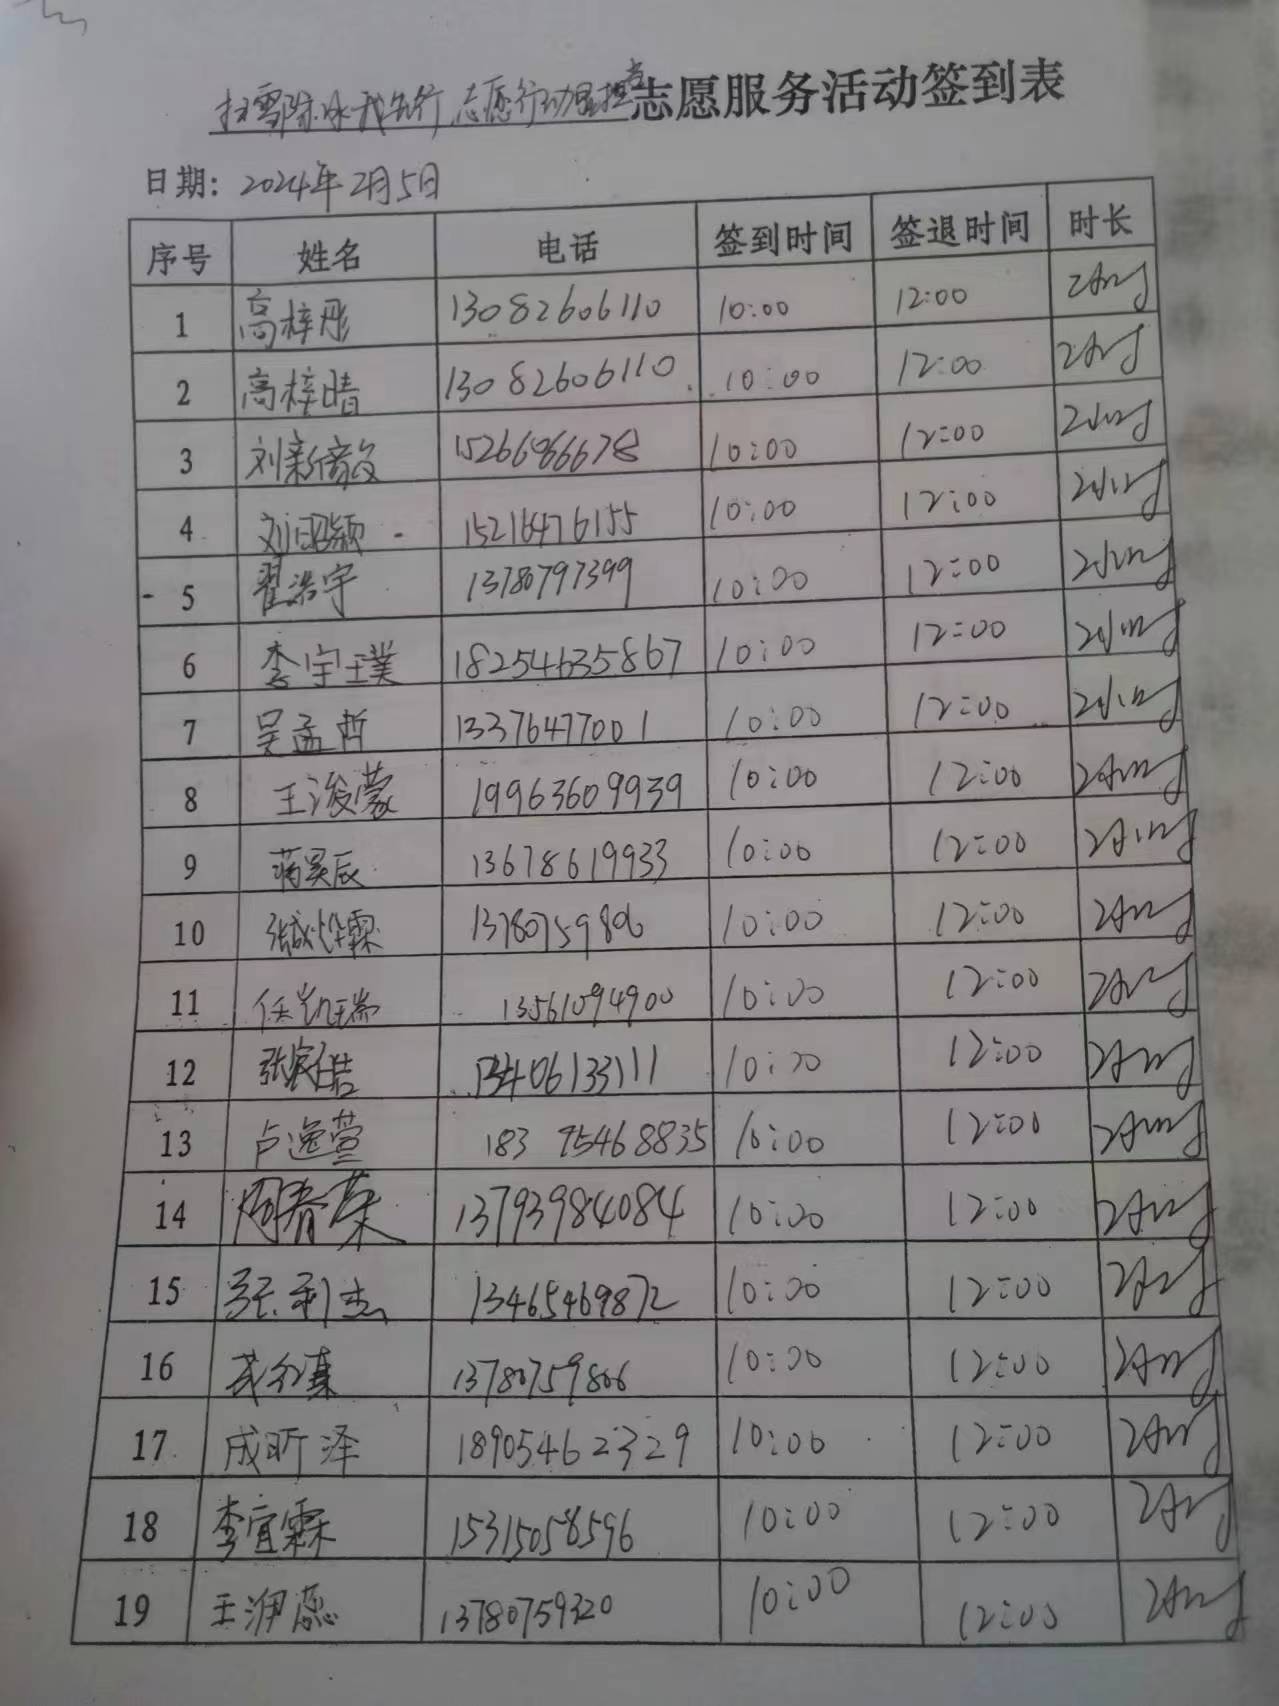 扫雪除冰我先行 志愿行动显担当志愿服务活动签到表
日期：2024年2月5日
序号 姓名 电话 签到时间 签退时间 时长
1 高梓彤 13082606110 10:00 12:00 2小时
2 高梓晴 13082606110 10:00 12:00 2小时
3 刘新 15266866678 10:00 12:00 2小时
4 刘昭颖 15216476155 10:00 12:00 2小时
5 翟浩宇 13780797399 10:00 12:00 2小时
6 李宇璞 18254635867 10:00 12:00 2小时
7 吴孟哲 13376477001 10:00 12:00 2小时
8 王浚蒙 19963609939 10:00 12:00 2小时
9 蒋昊辰 13678619933 10:00 12:00 2小时
10 霖 13780759806 10:00 12:00 2小时
11 任凯瑞 13561094900 10:00 12:00 2小时
12 张家皓 13406133111 10:00 12:00 2小时
13 卢逸萱 183 75468835 10:00 12:00 2小时
14 周春荣 13793984084 10:00 12:00 2小时
15 张利杰 13465469872 10:00 12:00 2小时
16 13780759806 10:00 12:00 2小时
17 成昕泽 18905462329 10:00 12:00 2小时
18 李宜霖 15315058596 10:00 12:00 2小时
19 王润蕊 13780759320 10:00 12:00 2小时